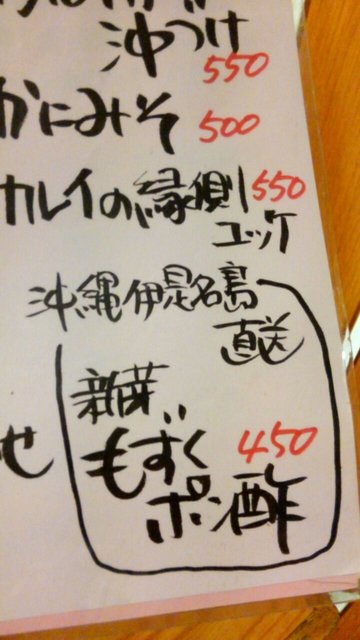 沖つけ
550
かにみそ 500
カレイの縁側 550
ユッケ
沖縄伊是名島
直送
新芽
もずく 450
ポン酢
せ